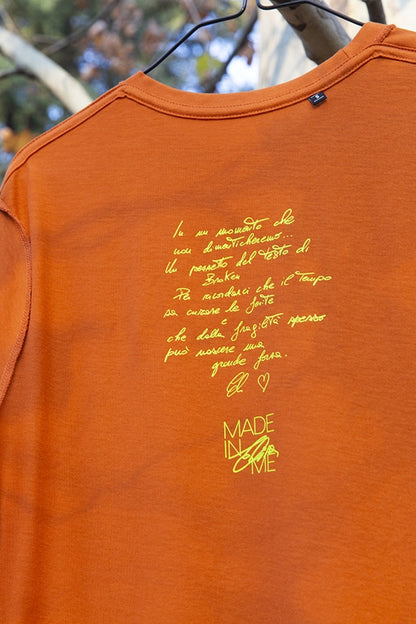 In un momento che
non dimenticheremo...
Un pezzetto del testo di
Broken
Per ricordarci che il tempo
sa curare le ferite
e
che dalla fragilità spesso
può nascere una
grande forza.
MADE
IN
ME